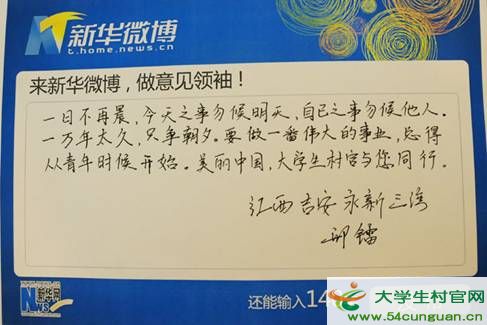 新华微博
t.home.news.cn
来新华微博，做意见领袖！
一日不再晨，今天之事勿候明天，自己之事勿候他人。
一万年太久，只争朝夕。要做一番伟大的事业，总得
从青年时候开始。美丽中国，大学生村官与您同行。
江西吉安永新三湾
邢镭
新华网
NEWS
还能输入14
大学生村官网
www.54cunguan.cn